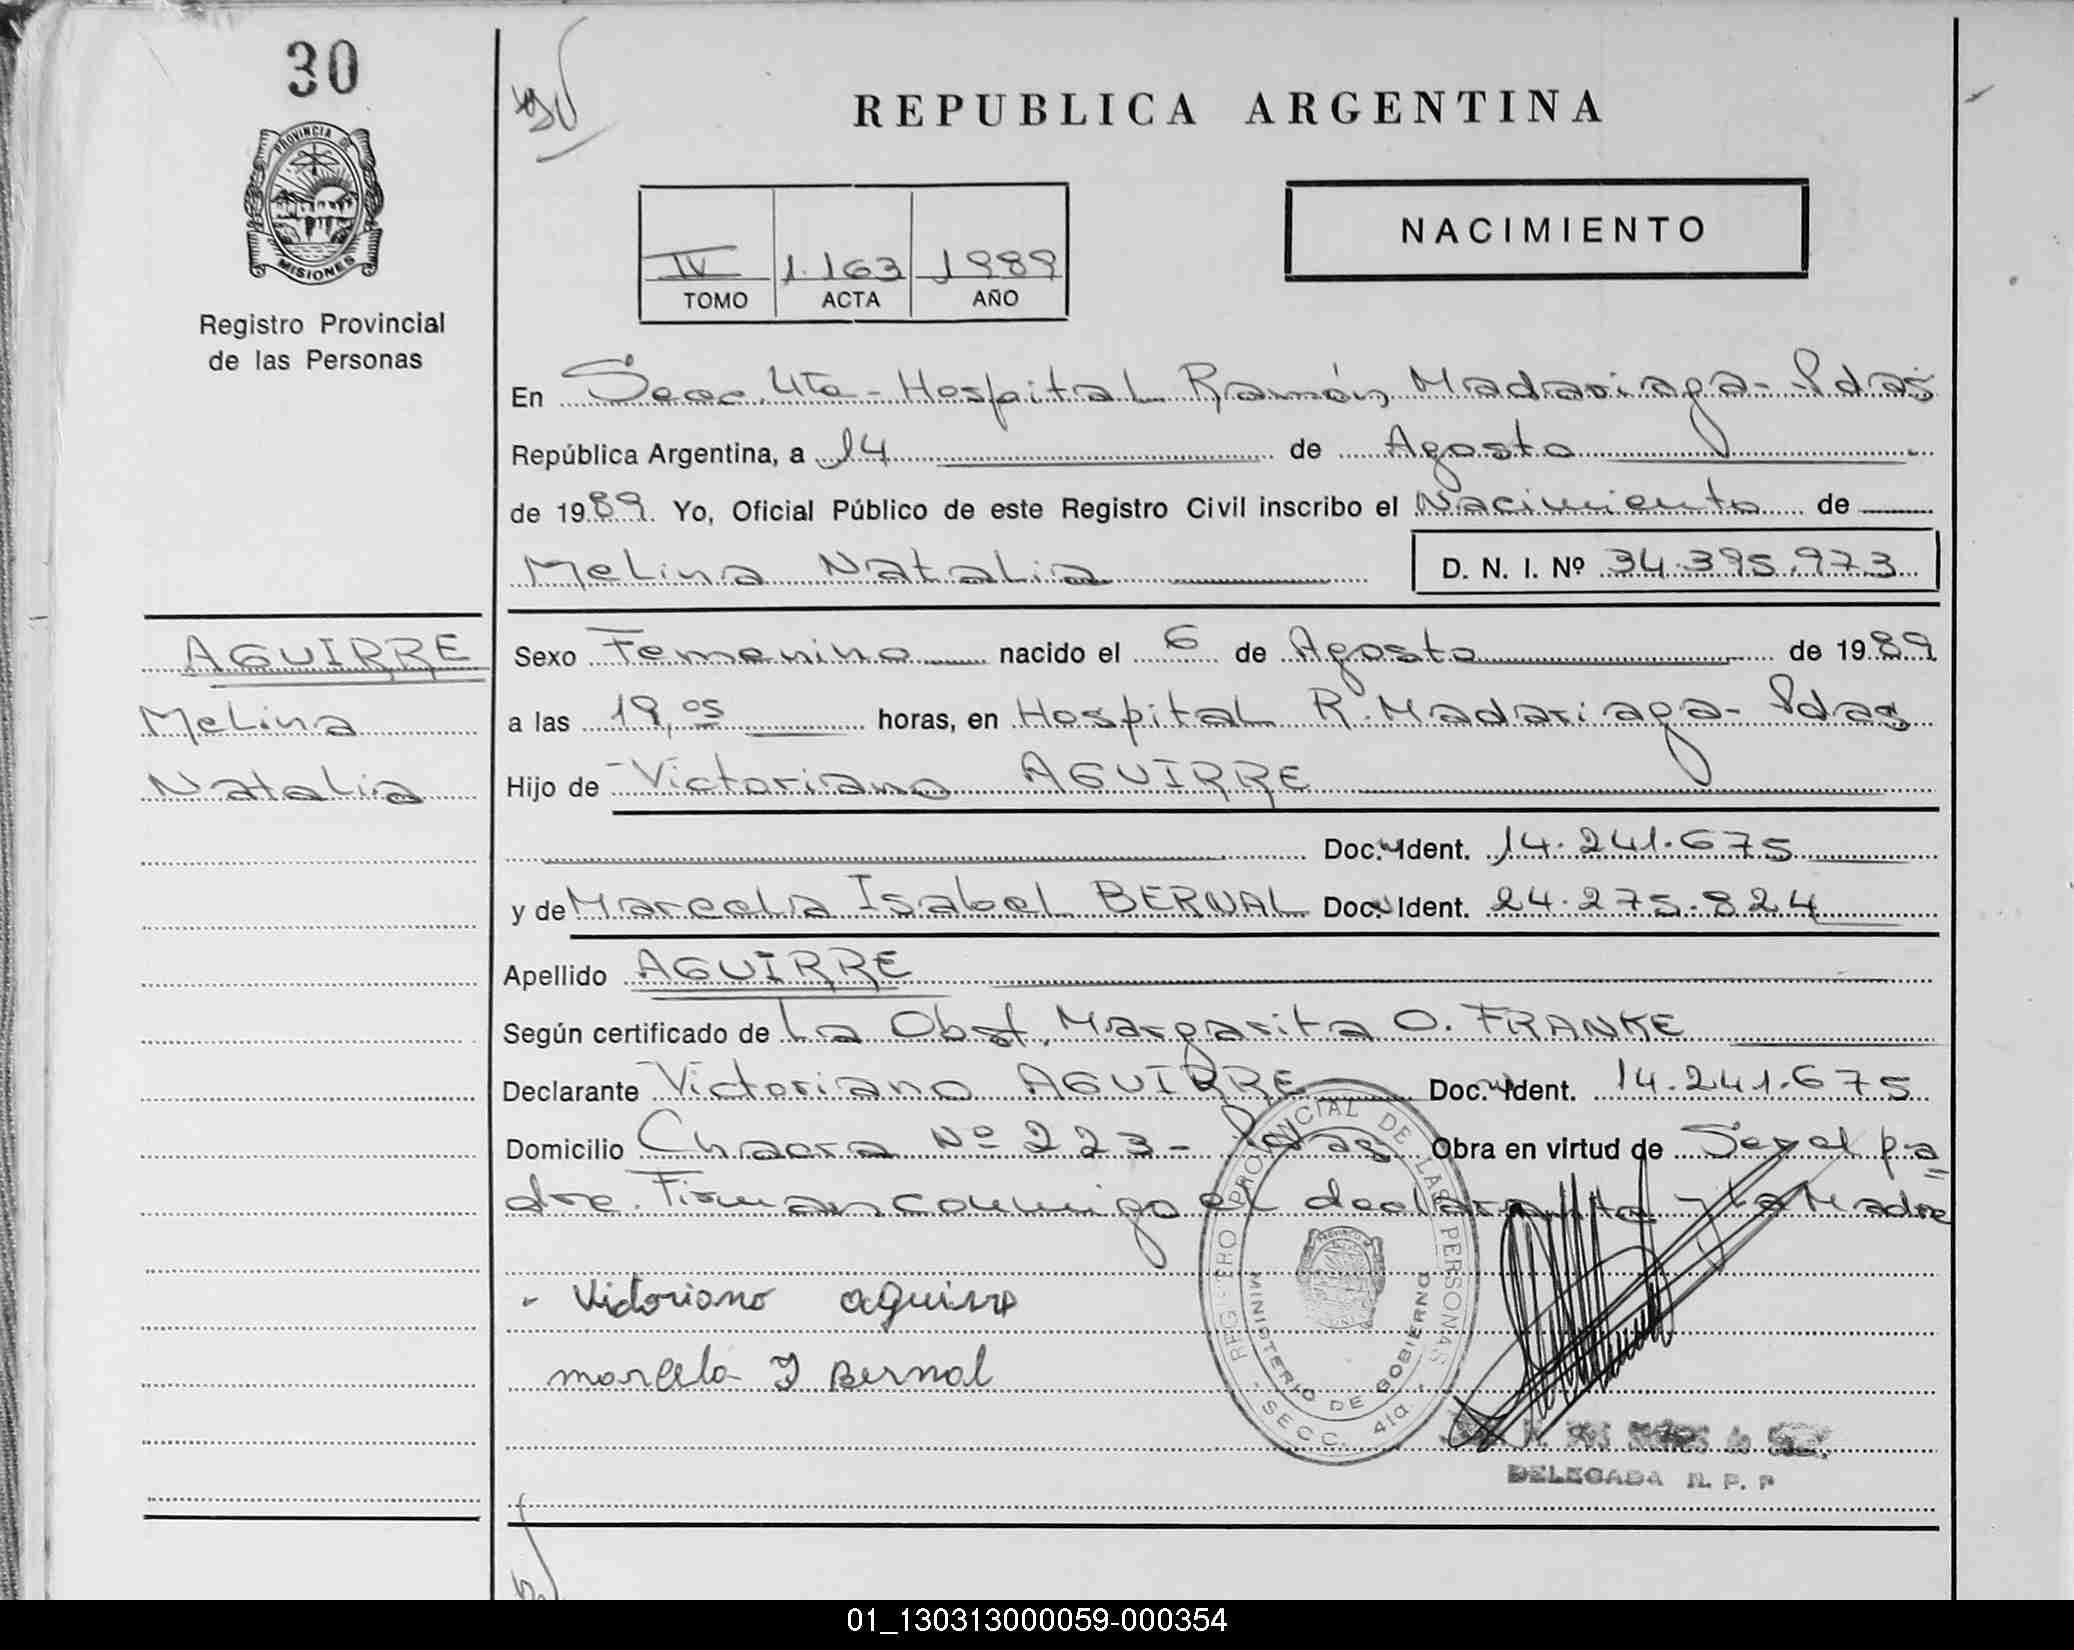 30
PROVINCIA DE
MISIONES
Registro Provincial
de las Personas
REPUBLICA ARGENTINA
NACIMIENTO
IV 1.163 1989
TOMO ACTA AÑO
En Secc. 4ta - Hospital Ramón Madariaga - Pdas
República Argentina, a 14 de Agosto
de 1989. Yo, Oficial Público de este Registro Civil inscribo el Nacimiento de
Melina Natalia D. N. I. Nº 34.395.973
AGUIRRE
Melina
Natalia
Sexo Femenino nacido el 6 de Agosto de 1989
a las 19,05 horas, en Hospital R. Madariaga - Pdas
Hijo de Victoriano AGUIRRE
Doc. Ident. 14.241.675
y de Marcela Isabel BERNAL Doc. Ident. 24.275.824
Apellido AGUIRRE
Según certificado de La Obst. Margarita O. FRANKE
Declarante Victoriano AGUIRRE Doc. Ident. 14.241.675
Domicilio Chacra Nº 223 - Pdas Obra en virtud de Ser el pa=
dre. Firman conmigo el declarante y la Madre
- Victoriano aguirre
marcela I Bernal
REGISTRO PROVINCIAL DE LAS PERSONAS
MINISTERIO DE GOBIERNO
- SECC. 4ta -
DELEGADA R. P. P
01_130313000059-000354